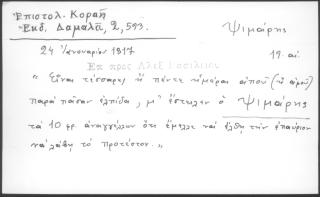 Ἐπιστολ. Κοραῆ
Ἐκδ. Δαμαλᾶ, 2, 593.
Ψιμάρης
24 Ἰανουαρίου 1817
19. αἰ.
Επ προς Αλεξ Βασιλειου
« Εἶναι τέσσαρες ἢ πέντε ἡμέραι ἀποῦ (
παρὰ πᾶσαν ἐλπίδα, μ' ἔστειλεν ὁ Ψιμάρης
τὰ 10 φρ. ἀναγγέλλων ὅτι ἔμελλε νὰ ἔλθῃ τὴν ἐπαύριον
νὰ λάβῃ τὸ προτέστον. »